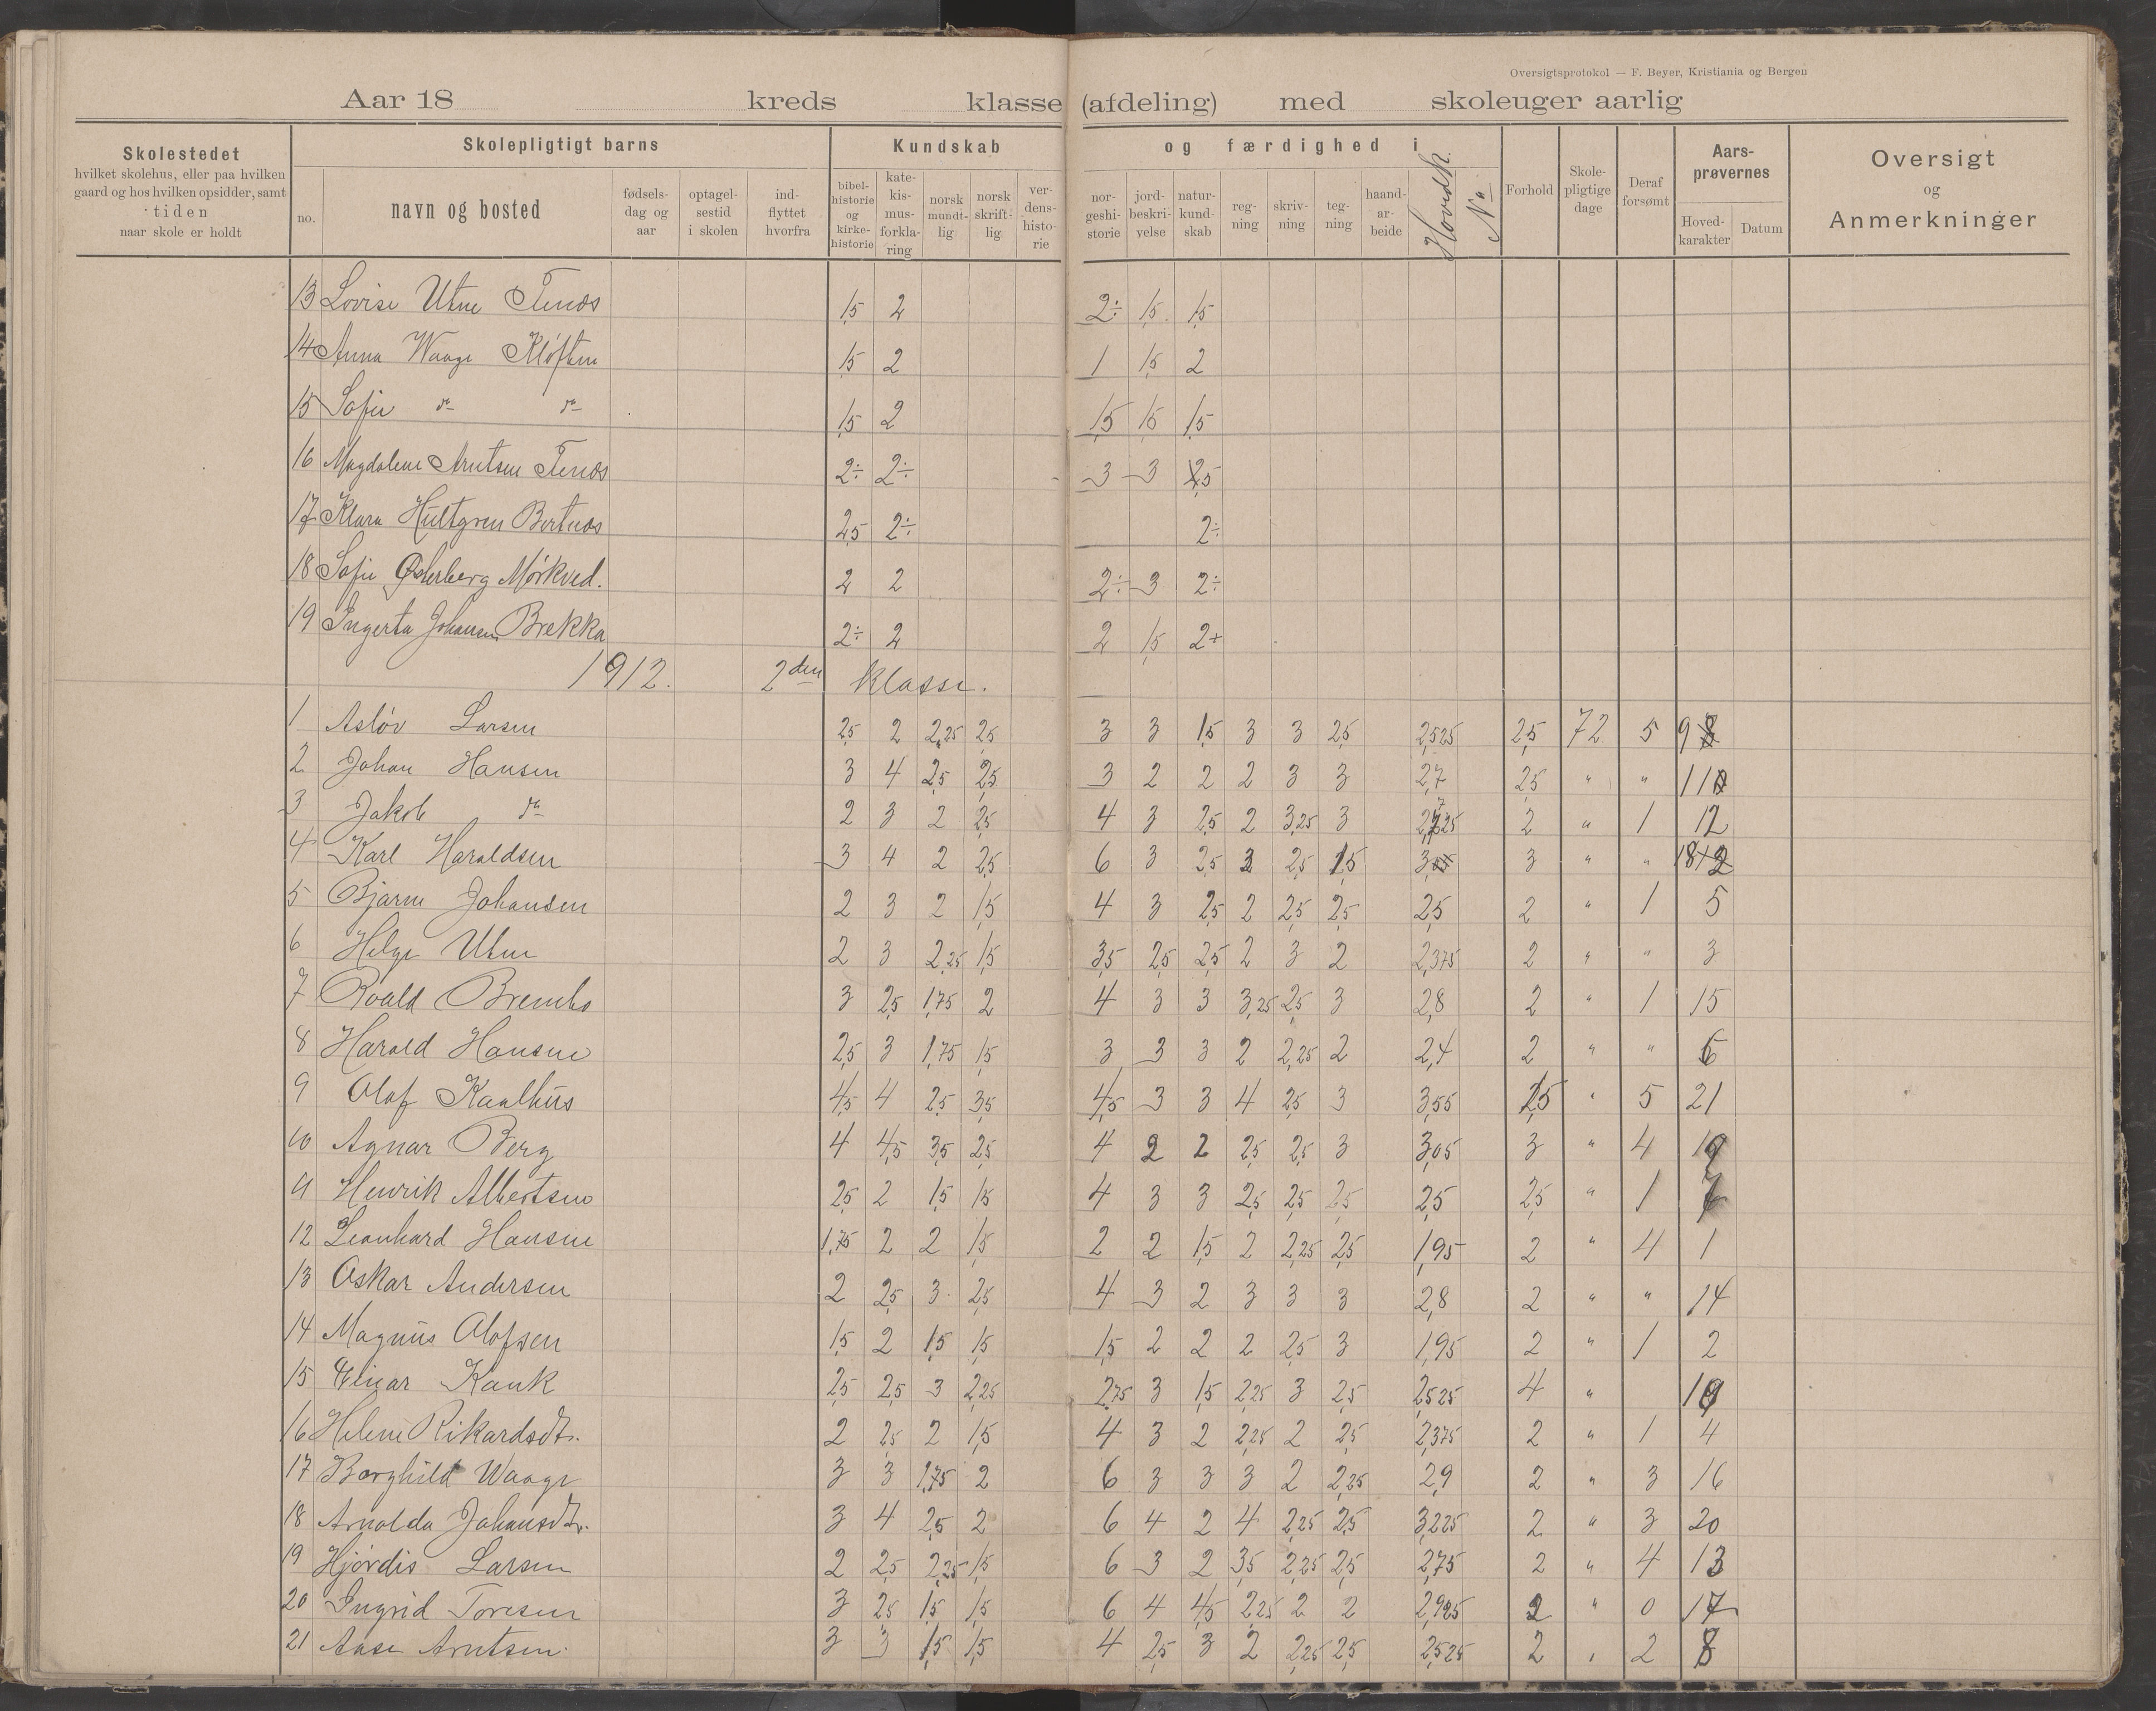 Oversigtsprotokol — F. Beyer, Kristiania og Bergen
Aar 18 kreds klasse (afdeling) med skoleuger aarlig
Skolestedet
hvilket skolehus, eller paa hvilken
gaard og hos hvilken opsidder, samt
tiden
naar skole er holdt
Skolepligtigt barns
no.
navn og bosted
fødsels-
dag og
aar
optagel-
sestid
i skolen
ind-
flyttet
hvorfra
Kundskab og færdighed i
bibel-
historie
og
kirke-
historie
kate-
kis-
mus-
forkla-
ring
norsk
mundt-
lig
norsk
skrift-
lig
ver-
dens-
histo-
rie
nor-
geshi-
storie
jord-
beskri-
velse
natur-
kund-
skab
reg-
ning
skriv-
ning
teg-
ning
haand-
ar-
beide
Hovedk.
No
Forhold
Skole-
pligtige
dage
Deraf
forsømt
Aars-
prøvernes
Hoved-
karakter
Datum
Oversigt
og
Anmerkninger
13 Lovise Utne Tenæs 1,5 2 2÷ 1,5 1,5
14 Anna Waage Kløften 1,5 2 1 1,5 2
15 Sofie do do 1,5 2 1,5 1,5 1,5
16 Magdalene Arntsen Tenæs 2÷ 2÷ 3 3 2,5
17 Klara Hultgren Bertnæs 2,5 2÷ 2÷
18 Sofie Østerberg Mørkved. 2 2 2÷ 3 2÷
19 Ingerta Johansen Brekka 2÷ 2 2 1,5 2+
1912. 2den klasse.
1 Asløv Larsen 2,5 2 2,25 2,5 3 3 1,5 3 3 2,5 2,525 2,5 72 5 9
2 Johan Hansen 3 4 2,5 2,5 3 2 2 2 3 3 2,7 2,5 " " 11
3 Jakob do 2 3 2 2,5 4 3 2,5 2 3,25 3 2,725 2 " 1 12
4 Karl Haraldsen 3 4 2 2,5 6 3 2,5 3 2,5 1,5 3 3 " " 18
5 Bjarne Johansen 2 3 2 1,5 4 3 2,5 2 2,5 2,5 2,5 2 " 1 5
6 Helge Utne 2 3 2,25 1,5 3,5 2,5 2,5 2 3 2 2,375 2 " " 3
7 Roald Brembo 3 2,5 1,75 2 4 3 3 3,25 2,5 3 2,8 2 " 1 15
8 Harald Hansen 2,5 3 1,75 1,5 3 3 3 2 2,25 2 2,4 2 " " 6
9 Olaf Kaalhus 4,5 4 2,5 3,5 4,5 3 3 4 2,5 3 3,55 2,5 " 5 21
10 Agnar Berg 4 4,5 3,5 2,5 4 2 2 2,5 2,5 3 3,05 3 " 4 19
11 Henrik Albertsen 2,5 2 1,5 1,5 4 3 3 2,5 2,5 2,5 2,5 2,5 " 1
12 Leonhard Hansen 1,75 2 2 1,5 2 2 1,5 2 2,25 2,5 1,95 2 " 4 1
13 Oskar Andersen 2 2,5 3 2,5 4 3 2 3 3 3 2,8 2 " " 14
14 Magnus Olofsen 1,5 2 1,5 1,5 1,5 2 2 2 2,5 3 1,95 2 " 1 2
15 Einar Kauk 2,5 2,5 3 2,25 2,75 3 1,5 2,25 3 2,5 2,525 4 " 10
16 Helene Rikardsdtr. 2 2,5 2 1,5 4 3 2 2,25 2 2,5 2,375 2 " 1 4
17 Borghild Waage 3 3 1,75 2 6 3 3 3 2 2,25 2,9 2 " 3 16
18 Arnolda Johansdtr. 3 4 2,5 2 6 4 2 4 2,25 2,5 3,225 2 " 3 20
19 Hjørdis Larsen 2 2,5 2,25 1,5 6 3 2 3,5 2,25 2,5 2,75 2 " 4 13
20 Ingrid Toresen 3 2,5 1,5 1,5 6 4 4,5 2,25 2 2 2,925 2 " 0 17
21 Aase Arntsen 3 3 1,5 1,5 4 2,5 3 2 2,25 2,5 2,525 2 " 2 8